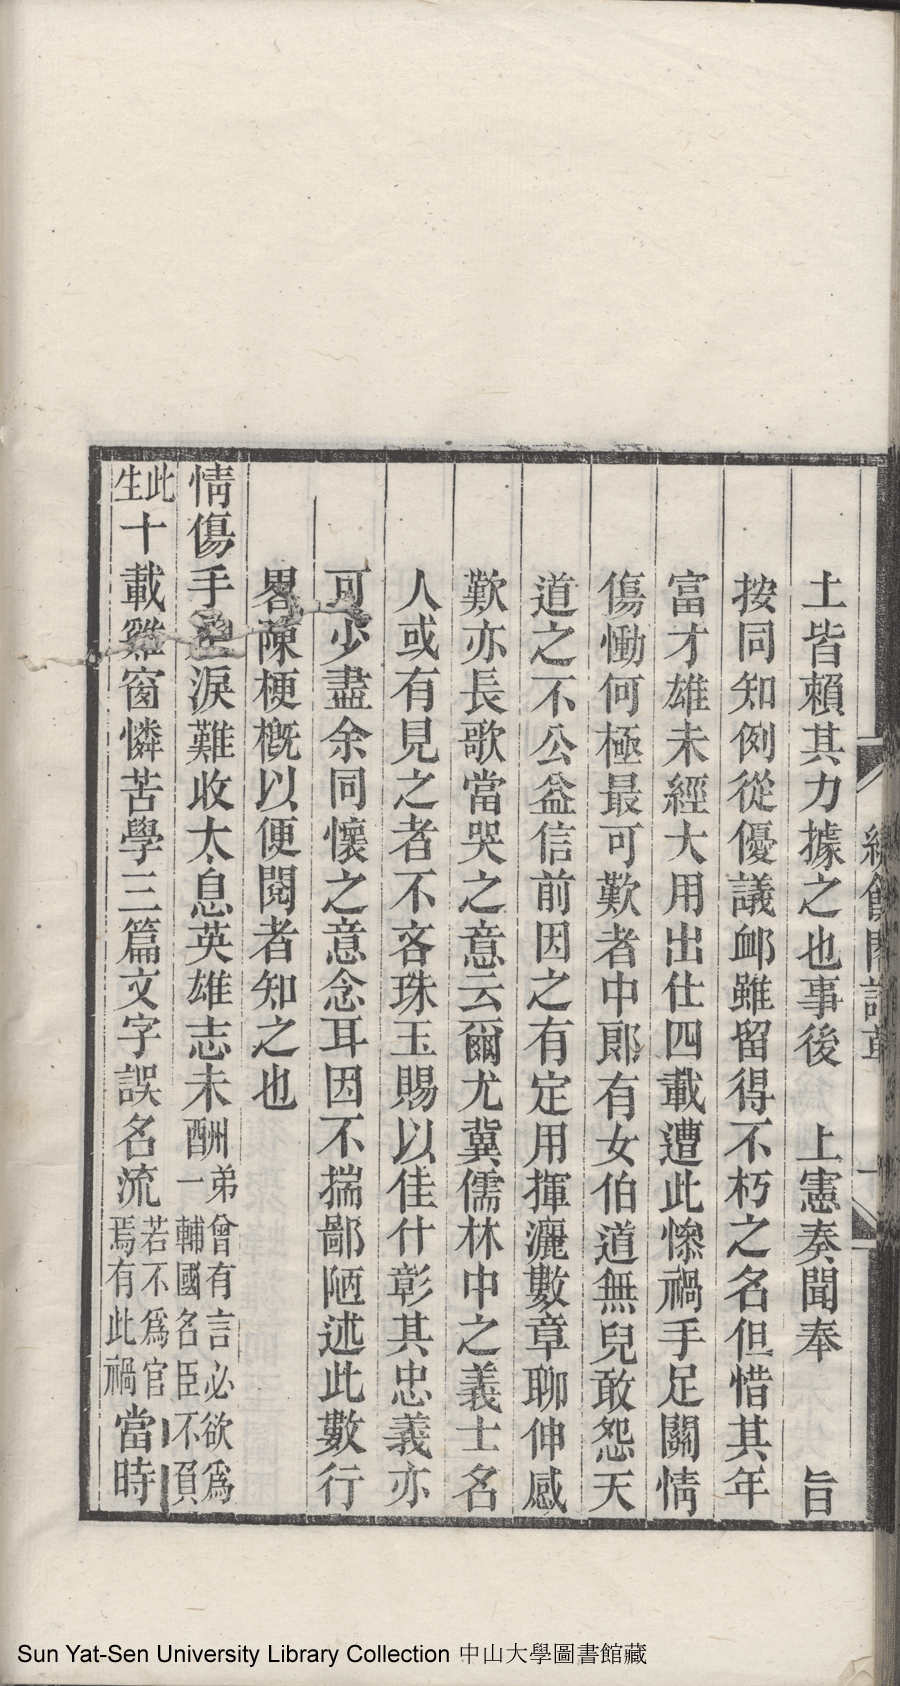 土皆賴其力據之也事後　上憲奏聞奉　旨
按同知例從優議卹雖留得不朽之名但惜其年
富才雄未經大用出仕四載遭此慘禍手足關情
傷慟何極最可歎者中郎有女伯道無兒敢怨天
道之不公益信前因之有定用揮灑數章聊伸感
歎亦長歌當哭之意云爾尤冀儒林中之義士名
人或有見之者不吝珠玉賜以佳什彰其忠義亦
可少盡余同懷之意念耳因不揣鄙陋述此數行
畧陳梗概以便閱者知之也
情傷手足淚難收太息英雄志未酬弟曾有言必欲爲一輔國名臣不負
此生十載雞窗憐苦學三篇文字誤名流若不爲官焉有此禍當時
Sun Yat-Sen University Library Collection 中山大學圖書館藏